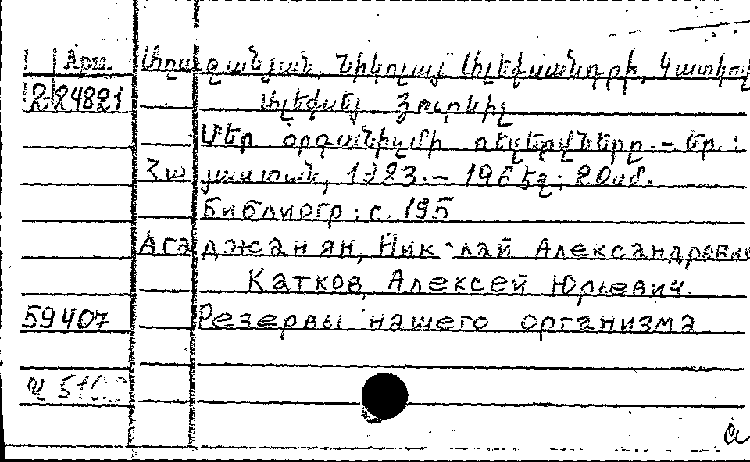 Արս. Աղաջանյան, Նիկոլայ Ալեքսանդրի, Կատկով
224821 Ալեքսեյ Յուրևիչ
Մեր օրգանիզմի ռեզերվները. – Եր.:
Հայաստան, 1983. – 196 էջ; 20սմ.
Библиогр: с. 195
Агаджанян, Николай Александрович
Катков, Алексей Юрьевич.
59407 Резервы нашего организма